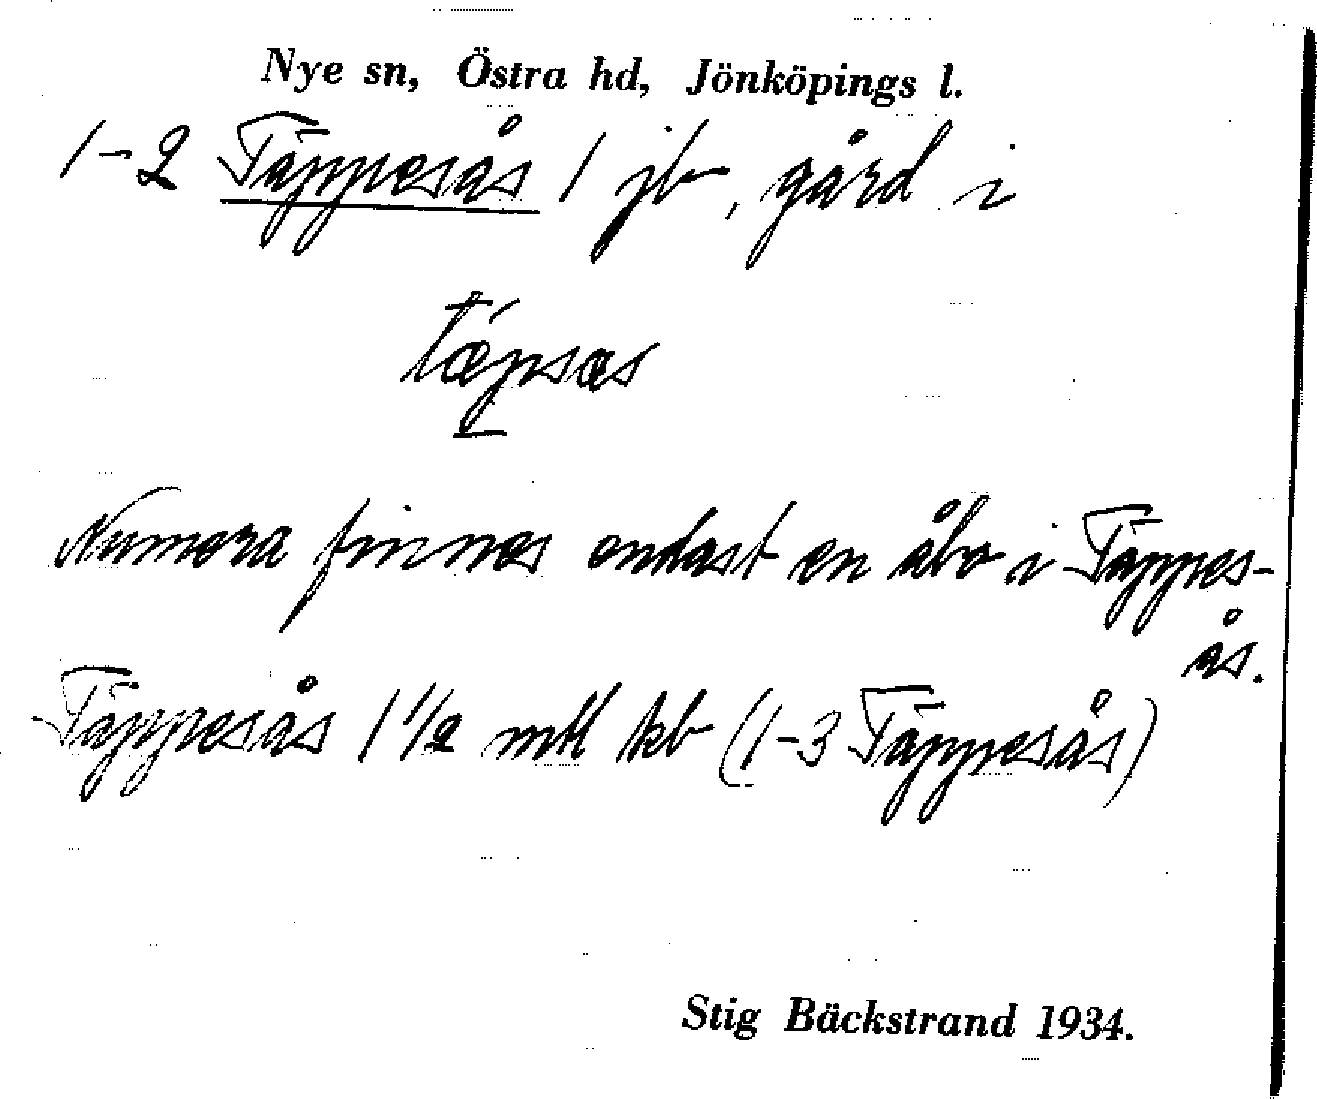 Nye sn, Östra hd, Jönköpings l.
1-2 Täppesås 1 jb, gård i
tǽpsas
Numera finnes endast en åbo i Täppes-
ås.
Täppesås 1 1/2 mtl kb (1-3 Täppesås)
Stig Bäckstrand 1934.